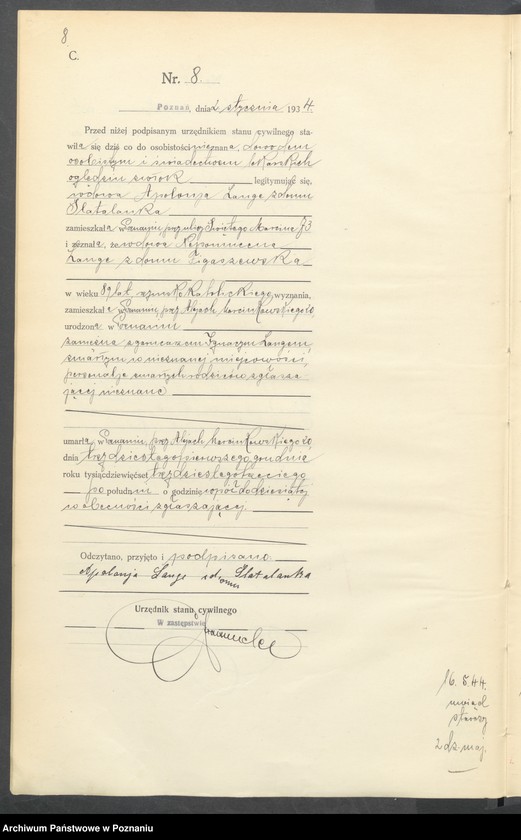 8
C.
Nr. 8.
Poznań, dnia 2 stycznia 1934.
Przed niżej podpisanym urzędnikiem stanu cywilnego sta-
wiła się dziś co do osobistości znana, dowodem
osobistym i świadectwem lekarskich
oględzin zwłok legitymując się,
wdowa Apolonja Lange z domu
Slatalanka
zamieszkała w Poznaniu, przy ulicy Świętego Marcina 73
i zeznała, że wdowa Nepomucena
Lange z domu Zigaszewska
w wieku 89 lat, rzymsko Katolickiego wyznania,
zamieszkała w Poznaniu, przy Alejach Marcinkowskiego
urodzona w Poznaniu
zamężna z Ignacym Langem,
zmarłym w nieznanej miejscowości,
personalje zmarłych rodziców zgłasza-
jącej nieznane
umarła w Poznaniu, przy Alejach Marcinkowskiego
dnia trzydziestego pierwszego grudnia
roku tysiącdziewięćset trzydziestego trzeciego
po południu o godzinie wpół do dziesiątej
w obecności zgłaszającej.
Odczytano, przyjęto i podpisano
Apolonja Lange z domu Slatalanka
Urzędnik stanu cywilnego
W zastępstwie
16. 5. 44.
starszy
2 dz. maj.
Archiwum Państwowe w Poznaniu